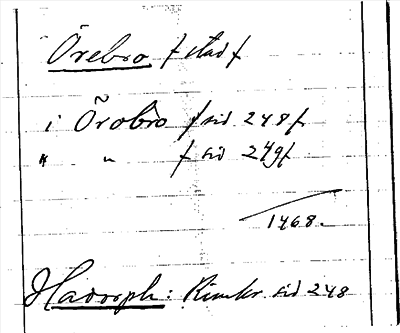 Örebro /stad/
i Örobro /sid 248/
" " /sid 249/
1468.
Hadorph: Rimkr. sid 248